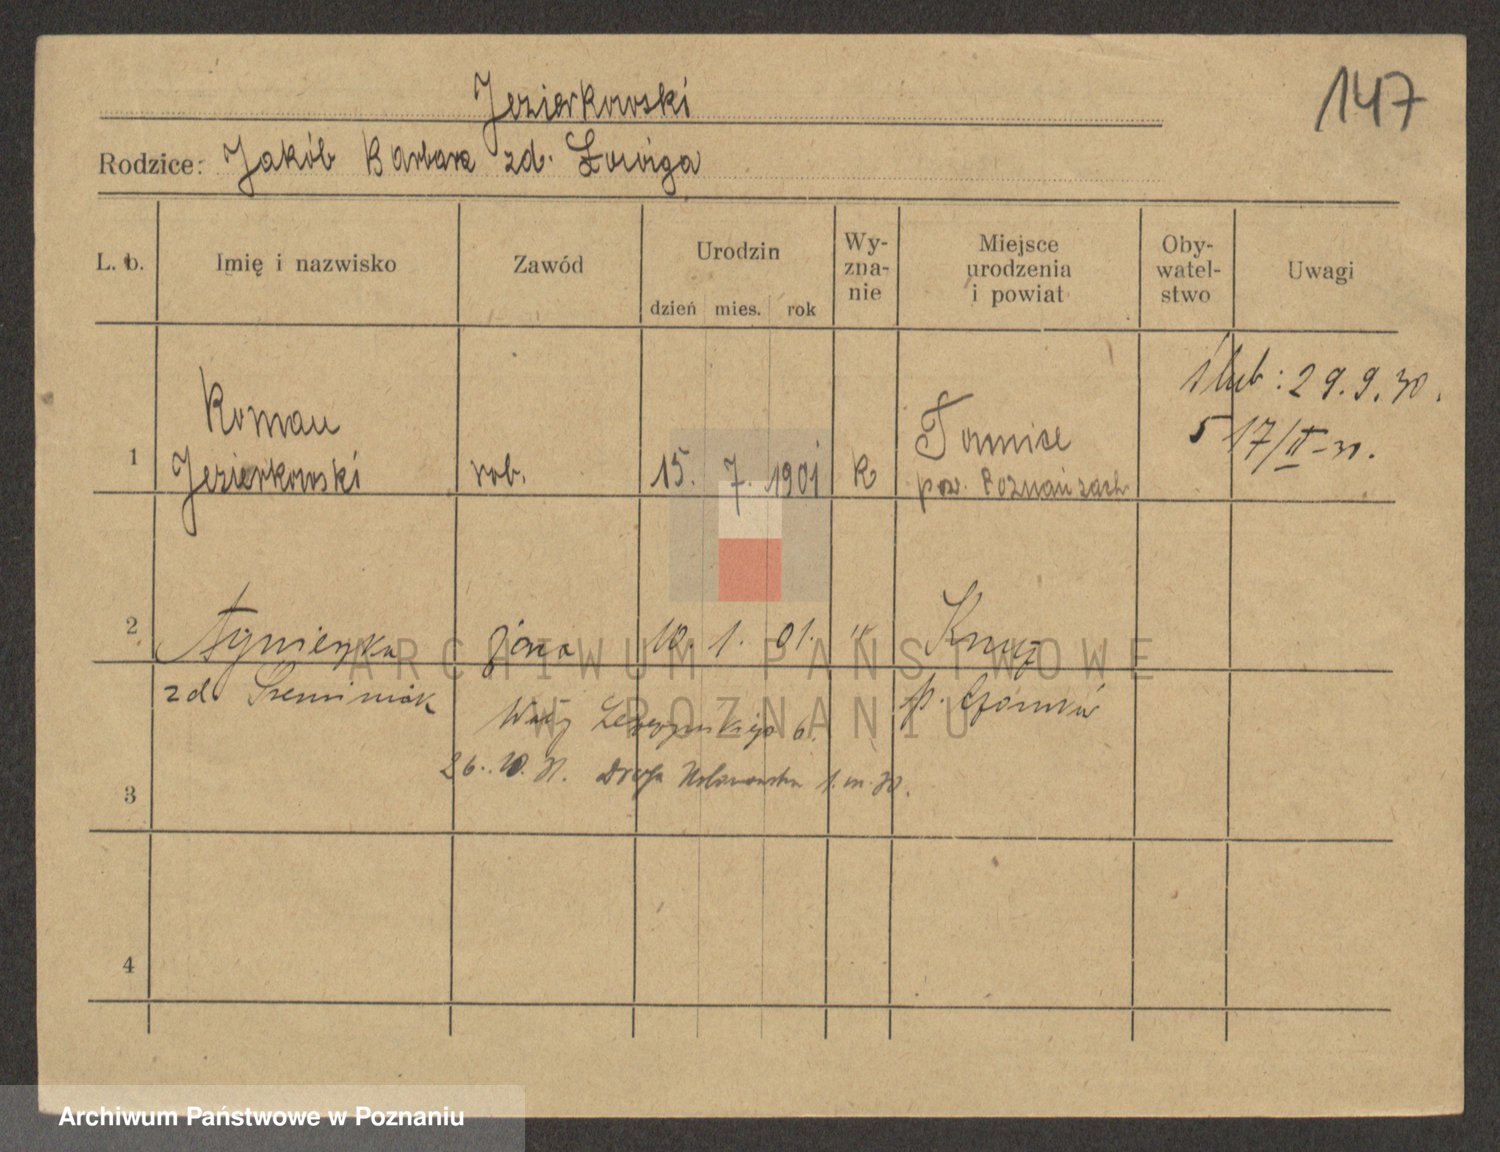 147
Jezierkowski
Rodzice: Jakób Barbara zd. Łowiga
L. b.
Imię i nazwisko
Zawód
Urodzin
dzień mies. rok
Wy-
zna-
nie
Miejsce
urodzenia
i powiat
Oby-
watel-
stwo
Uwagi
1
Roman
Jezierkowski
rob.
15. 7. 1901
K
Tomice
pow. Poznań zach.
ślub: 29.9.30.
17/II-30.
2
Agnieszka
zd.
żona
10. 1. 01.
"
3
26. 10. 31. Droga
4
ARCHIWUM PAŃSTWOWE
W POZNANIU
Archiwum Państwowe w Poznaniu